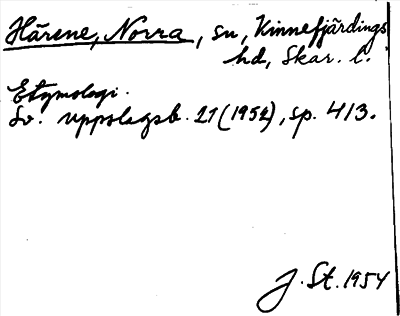 Härene, Norra, sn, Kinnefjärdings
hd, Skar. l.
Etymologi.
Sv. uppslagsb. 27 (1952), sp. 413.
J. St. 1954